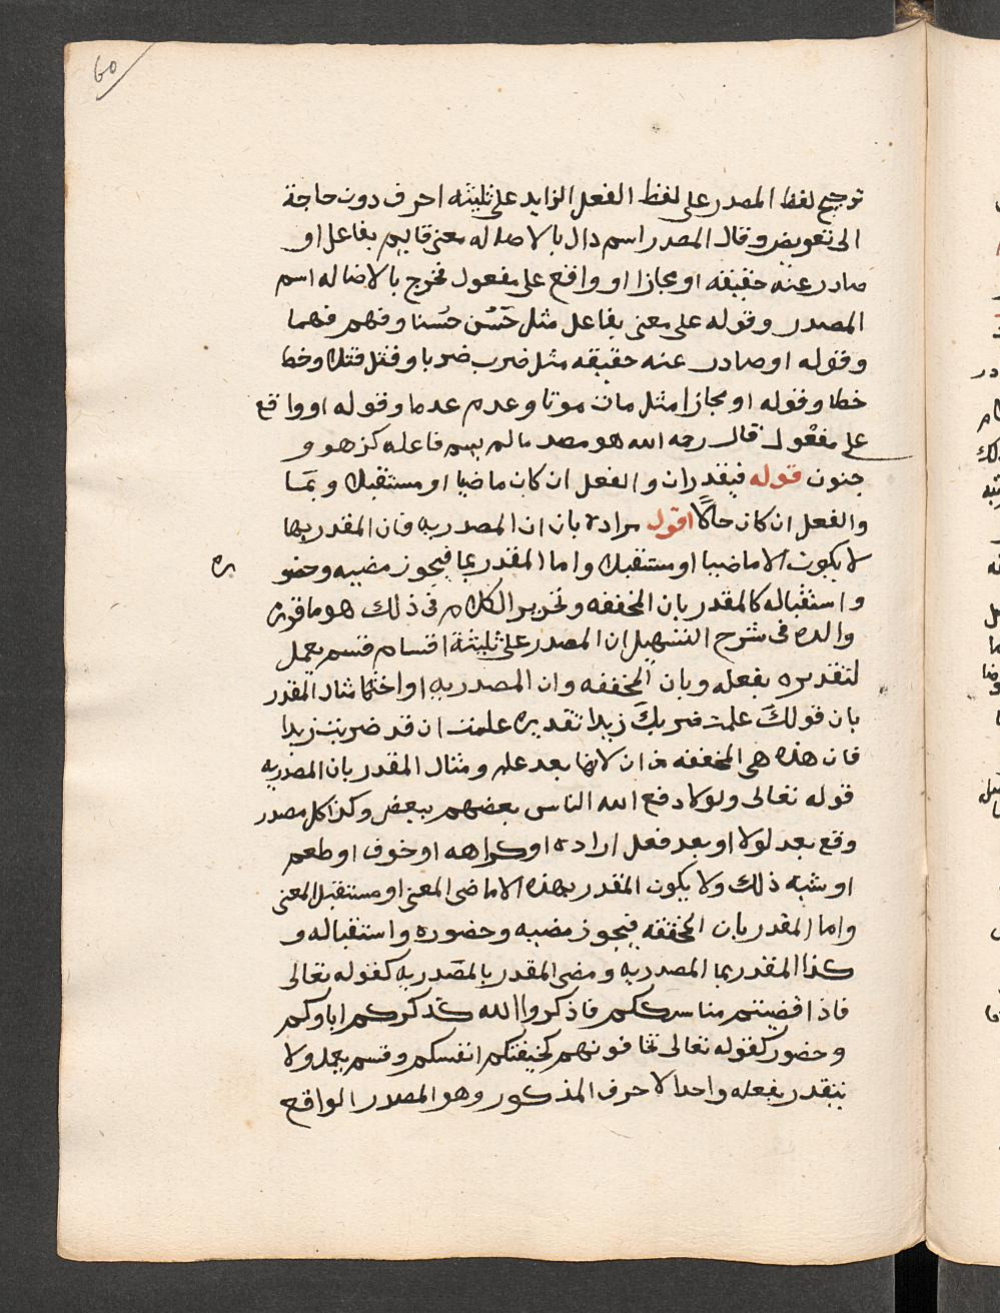 60
توجيح لفظ المصدر على لفظ الفعل الزايد على ثليثه احرف دون حاجة
الى تعويض وقال المصدر اسم دال بالاصاله معنى قايم بفاعل او
صادر عنه حقيقه او مجازا او واقع على مفعول فخرج بالاصاله اسم
المصدر وقوله على معنى بفاعل مثل حَسُن حُسنا وفهم فهما
وقوله او صادر عنه حقيقه مثل ضرب ضربا وقتل قتلا وخط
خطا وقوله او مجازا مثل مات موتا وعدم عدما وقوله او واقع
على مفعول قال رحه الله هو مصد ما لم يسم فاعله كزهو و
جنون قوله فيقدر ان والفعل ان كان ماضيا او مستقبلا وبمَا
والفعل ان كان حالًا اقول مراده بان ان المصدريه فان المقدر بها
لا يكون الا ماضيا او مستقبلا واما المقدر بما فيجوز مضيه وحضو ره
واستقباله كالمقدر بان المخففه وتحرير الكلام فى ذلك هو ما قرره
والده فى شرح التسهيل ان المصدر على ثليثة اقسام قسم يعمل
لتقديره بفعله وبان المخففه وان المصدريه او اختها مثال المقدر
بان قولكَ علمت ضربكَ زيدا تقديره علمت ان قد ضربت زيدا
فان هذه هى المخففه من ان لانها بعد علم ومثال المقدر بان المصدريه
قوله تعالى ولولا دفع الله الناس بعضهم ببعض وكذا كل مصدر
وقع بعد لولا او بعد فعل اراده او كراهه او خوف او طعم
او شبه ذلك ولا يكون المقدر بهذه الا ماضى المعنى او مستقبل المعنى
واما المقدر بان المخففه فيجوز مضيه وحضوره واستقباله و
كذا المقدر بما المصدريه ومضى المقدر بالمصدريه كقوله تعالى
فاذا قضيتم مناسككم فاذكروا الله كذكركم اباوكم
وحضور كقوله تعالى تخافونهم كخيفتكم انفسكم وقسم يعمل ولا
يتقدر بفعله واحدا لاحرف المذكور وهو المصدر الواقع